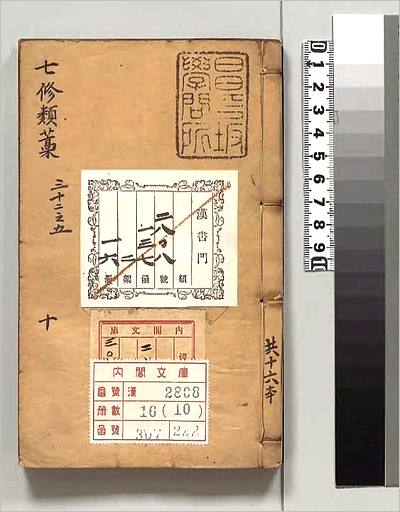 七修類藁
三十二之五
十
昌平坂
學問所
漢書門
類
號
函
架
冊
二八〇八
一三七
二
一六
內閣文庫
內閣文庫
番號 漢 2808
冊數 16(10)
函號 307 222
共十六本
0 1 2 3 4 5 6 7 8 9